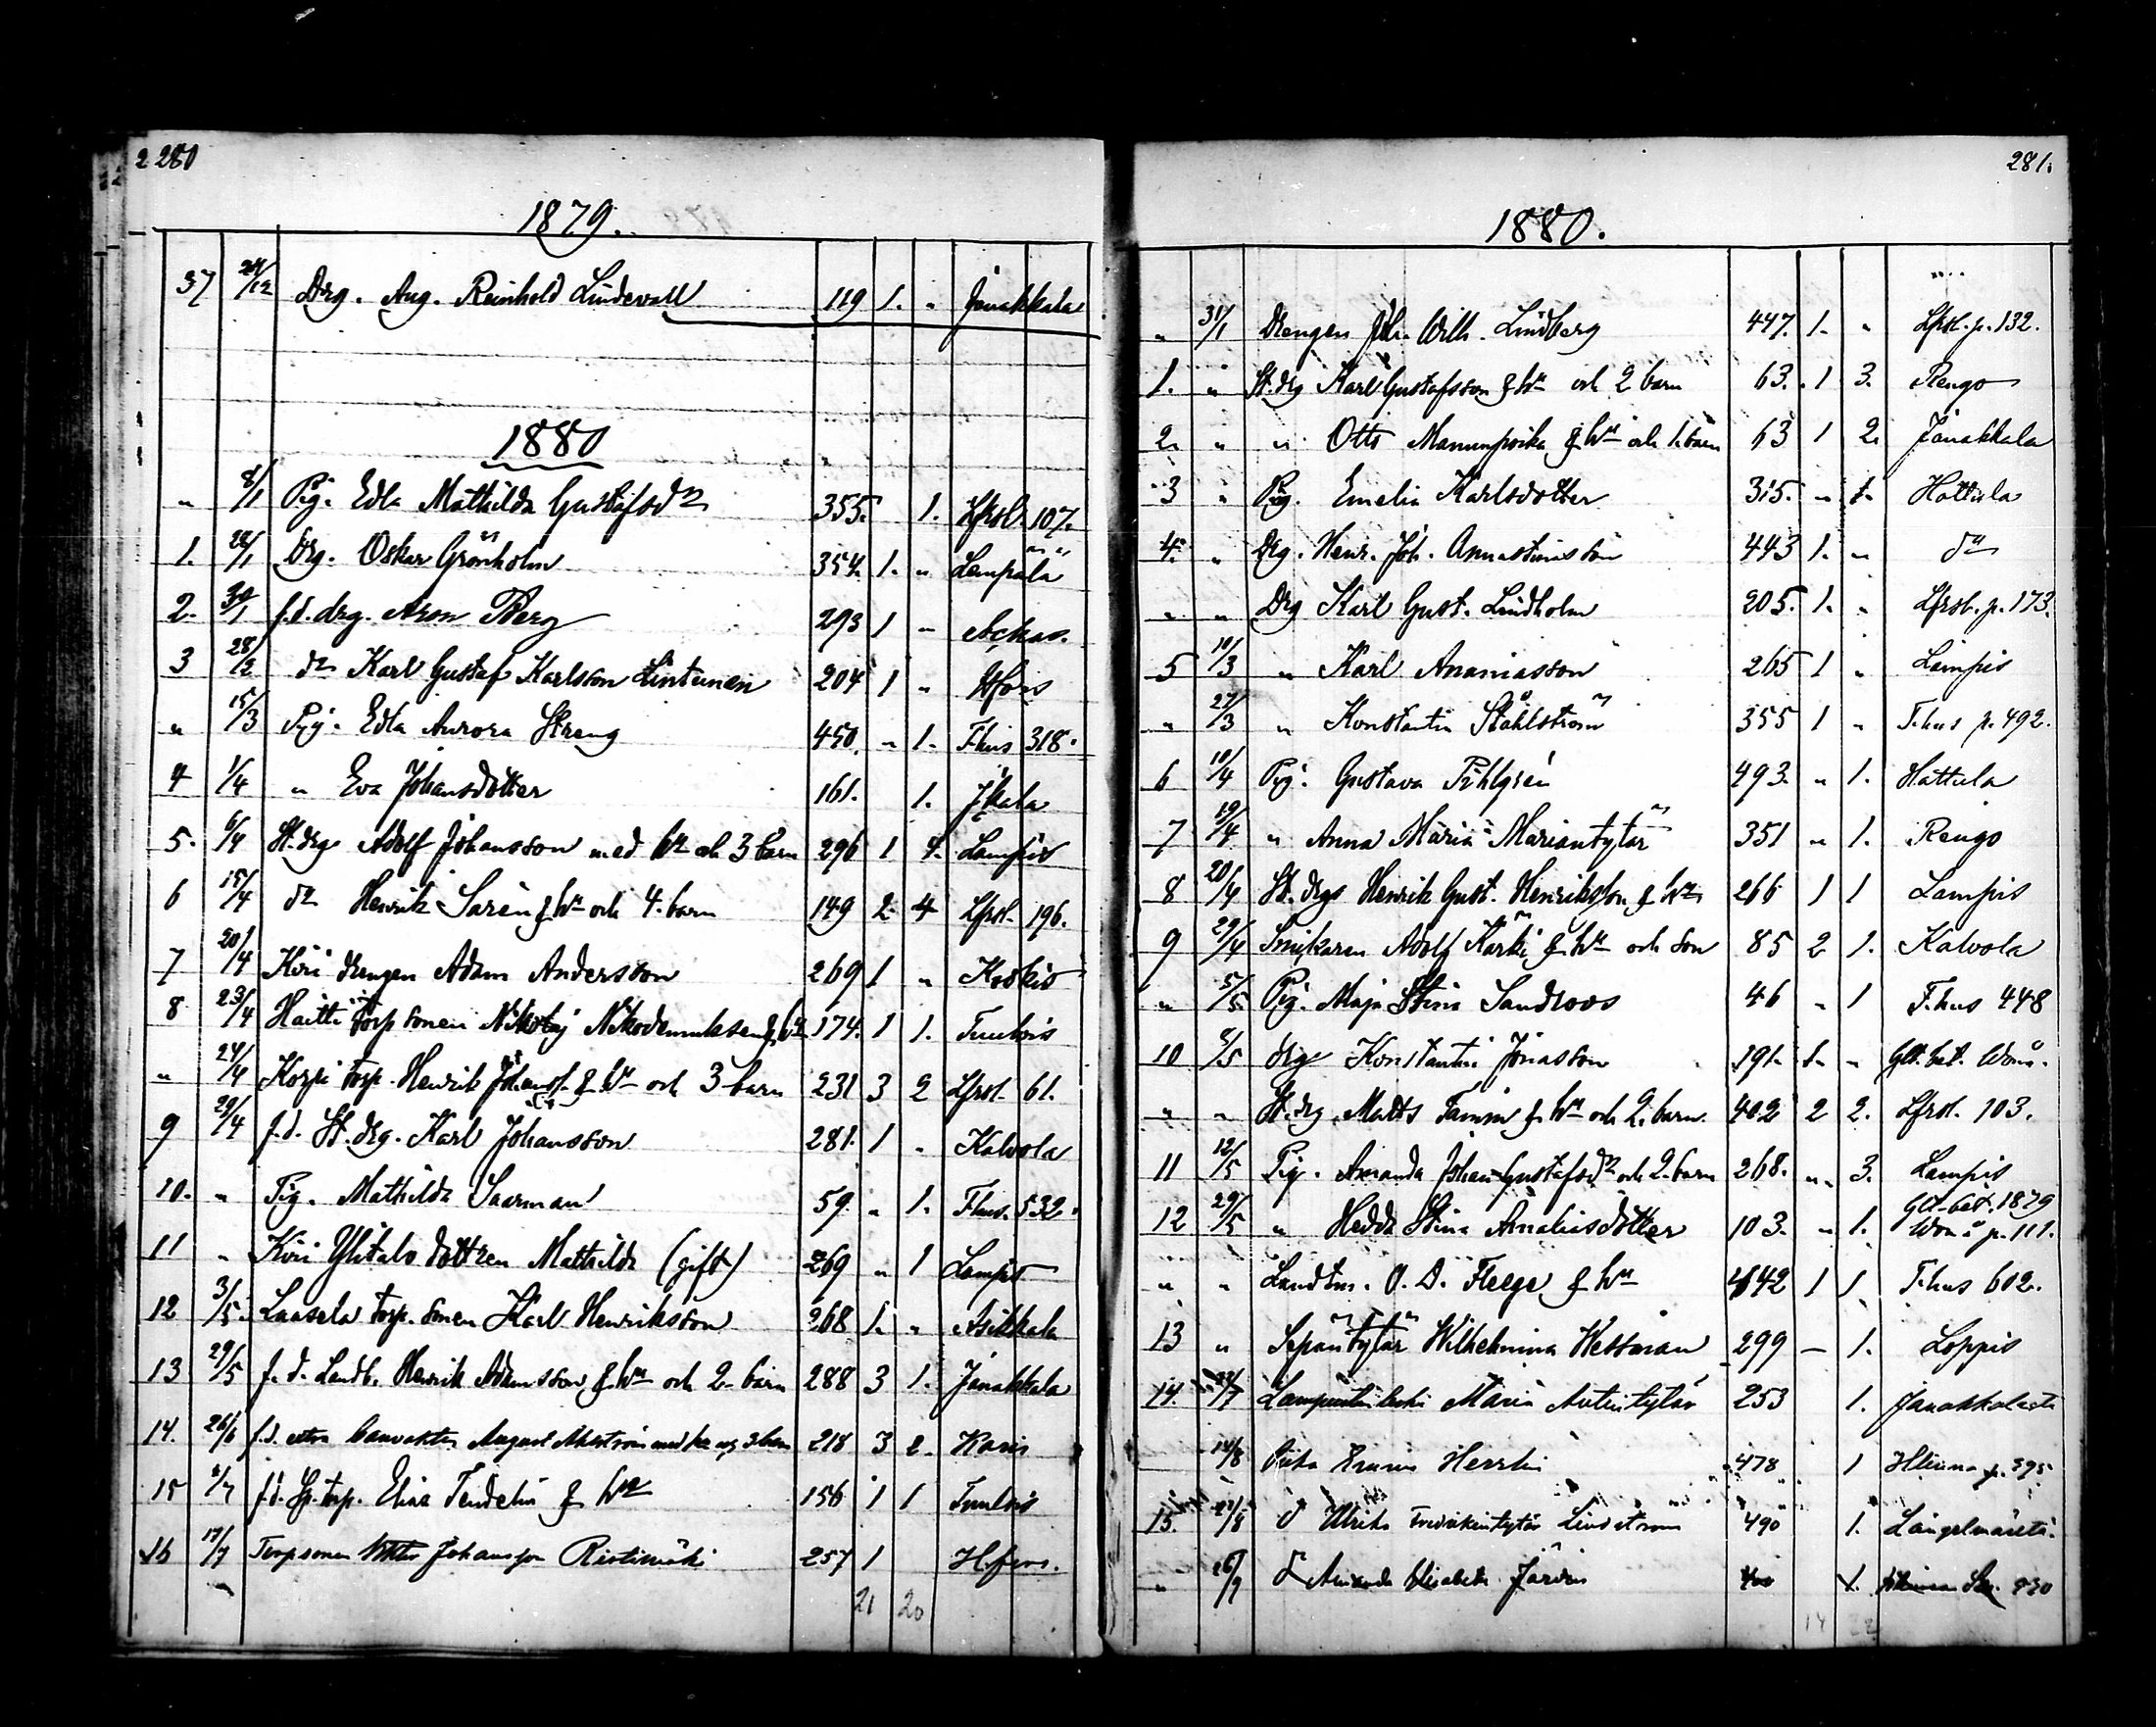 2 280
1879.
37 24/12 Drg. Aug. Reinhold Lindevall 119 1. " Janakkala
1880
" 8/1 Pig. Edla Mathilda Gustafsdr 355. 1. Lfrsl. 107.
1. 28/1 Drg. Oskar Grönholm 354. 1. " Lempälä
2. 30/1 f.d. drg. Aron Berg 293 1 "
3 28/2 do Karl Gustaf Karlsson Lintunen 204 1 " Hfors
" 15/3 Pig. Edla Aurora Streng 450. " 1. T.hus 318.
4 1/4 " Eva Johansdotter 161. 1. Jkala
5. 6/4 St.drg Adolf Johansson med hu och 3 barn 296 1 4. Lampis
6 15/4 do Henrik Saren & hu och 4. barn 149 2. 4 Lfrsl. 196.
7 20/4 Kiri drengen Adam Andersson 269 1 " Koskis
8 23/4 Haitti torp sonen Nikolaj Nikodemuksen & hu 174. 1 1. Tuulois
" 24/4 Korpi torp. Henrik Johanss. & hu och 3 barn 231 3 2 Lfrsl. 61.
9 29/4 f.d. St. drg. Karl Johansson 281. 1 " Kalvola
10. " Pig. Mathilda Saarman 59. " 1. T.hus. 532.
11 " Kiri Ylitalo dottren Mathilda (gift) 269 " 1 Lampis
12 3/5. Laasola torp. sonen Karl Henriksson 268 1. " Asikkala
13 29/5 f.d. Landb. Henrik Adamsson & hu och 2 barn 288 3 1. Janakkala
14. 26/6 f.d. extra banvakten August med hu og 3 barn 218 3 2. Karis
15 2/7 f.d. Sp.torp. Elias Tendelin & hu 156 1 1 Tuulois
16 17/7 Torpsonen Viktor Johansson Ristimäki 257 1 H.fors.
21 20
281.
1880.
" 31/1 Drengen Joh. Wilh. Lindberg 447. 1. " Lfrsl. p. 132.
1. " St.drg Karl Gustafsson & hu och 2 barn 63. 1 3. Rengo
2. " " Otto & hu och 1. barn 63 1 2. Janakkala
3 " Pig. Emelia Karlsdotter 315. " 1. Hattula
4. " Drg. Henr. Joh. Annastinasson 443 1. " do
" " Drg Karl Gust. Lindholm 205. 1. " Lfrsl. p. 173.
5 10/3 " Karl Ananiasson 265 1 " Lampis
" 27/3 " Konstantin Ståhlström 355 1 " T.hus p. 492.
6 10/4 Pig. Gustava Pihlgrén 493. " 1. Hattula
7 19/4 " Anna Maria Mariantytär 351 " 1. Rengo
8 20/4 St. drgs Henrik Gust. Henriksson & hu 266 1 1 Lampis
9 29/4 Snickaren Adolf Kärki & hu och son 85 2 1. Kalvola
" 5/5 Pig. Maja Stina Sandroos 46 " 1 T.hus 448
10 8/5 drg Konstantin Jonasson 191. 1. " Glt. bet. Wanå.
" " St. drg. Matts Tamm & hu och 2. barn. 402 2 2. Lfrsl. 103.
11 12/5 Pig. Amanda Johan Gustafsdr och 2. barn 268. " 3. Lampis
12 29/5 " Hedda Stina Amaliasdotter 103. " 1. Glt-bet. 1879 Wanå p. 111.
" " Landtm. O. A. Fleege & hu 642 1 1 T.hus 602.
13 " Sepäntytär Wilhelmina Wessman 299 – 1. Loppis
14. 23/7 Maria Antintytär 253 1. Janakkalasta
14/8 Piika Herrlin 478 1 p. 395
15. 21/8 do Ulrika Fredrikintytär Lindström 490 1. Längelmäeltä.
" 26/9 do Amanda Elisabeth Järvin 1. 830
14 22